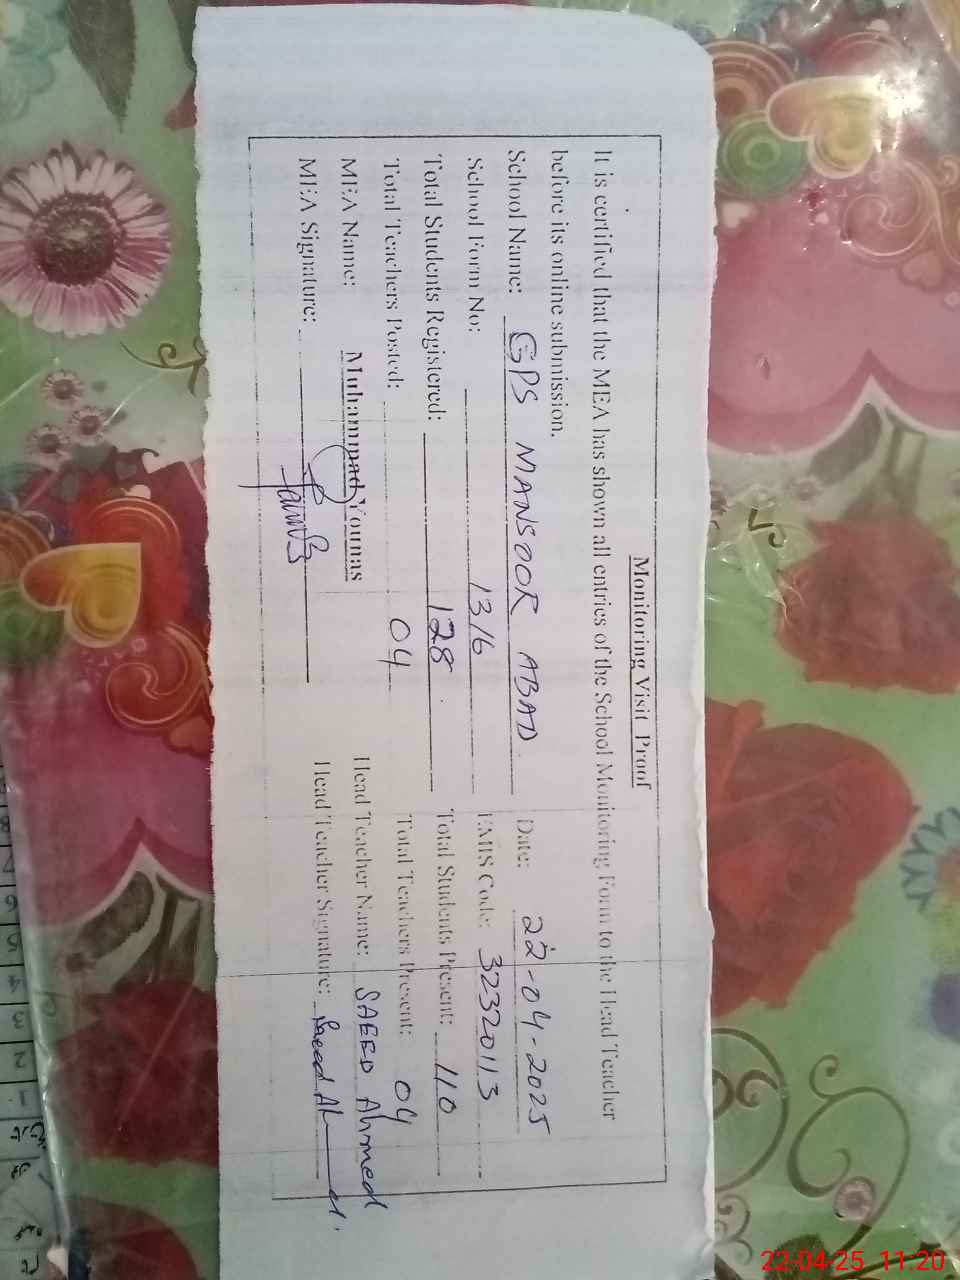 Monitoring Visit Proof
It is certified that the MEA has shown all entries of the School Monitoring Form to the Head Teacher
before its online submission.
School Name: GPS MANSOOR ABAD. Date: 22-04-2025
School Form No: 1316 EMIS Code: 32320113
Total Students Registered: 128 Total Students Present: 110
Total Teachers Posted: 04 Total Teachers Present: 04
MEA Name: Muhammad Younas Head Teacher Name: SAEED Ahmed
MEA Signature: Head Teacher Signature: Saeed Ahmed
8
7
6
5
4
3
2
1
تاریخ
22-04-25 11:20